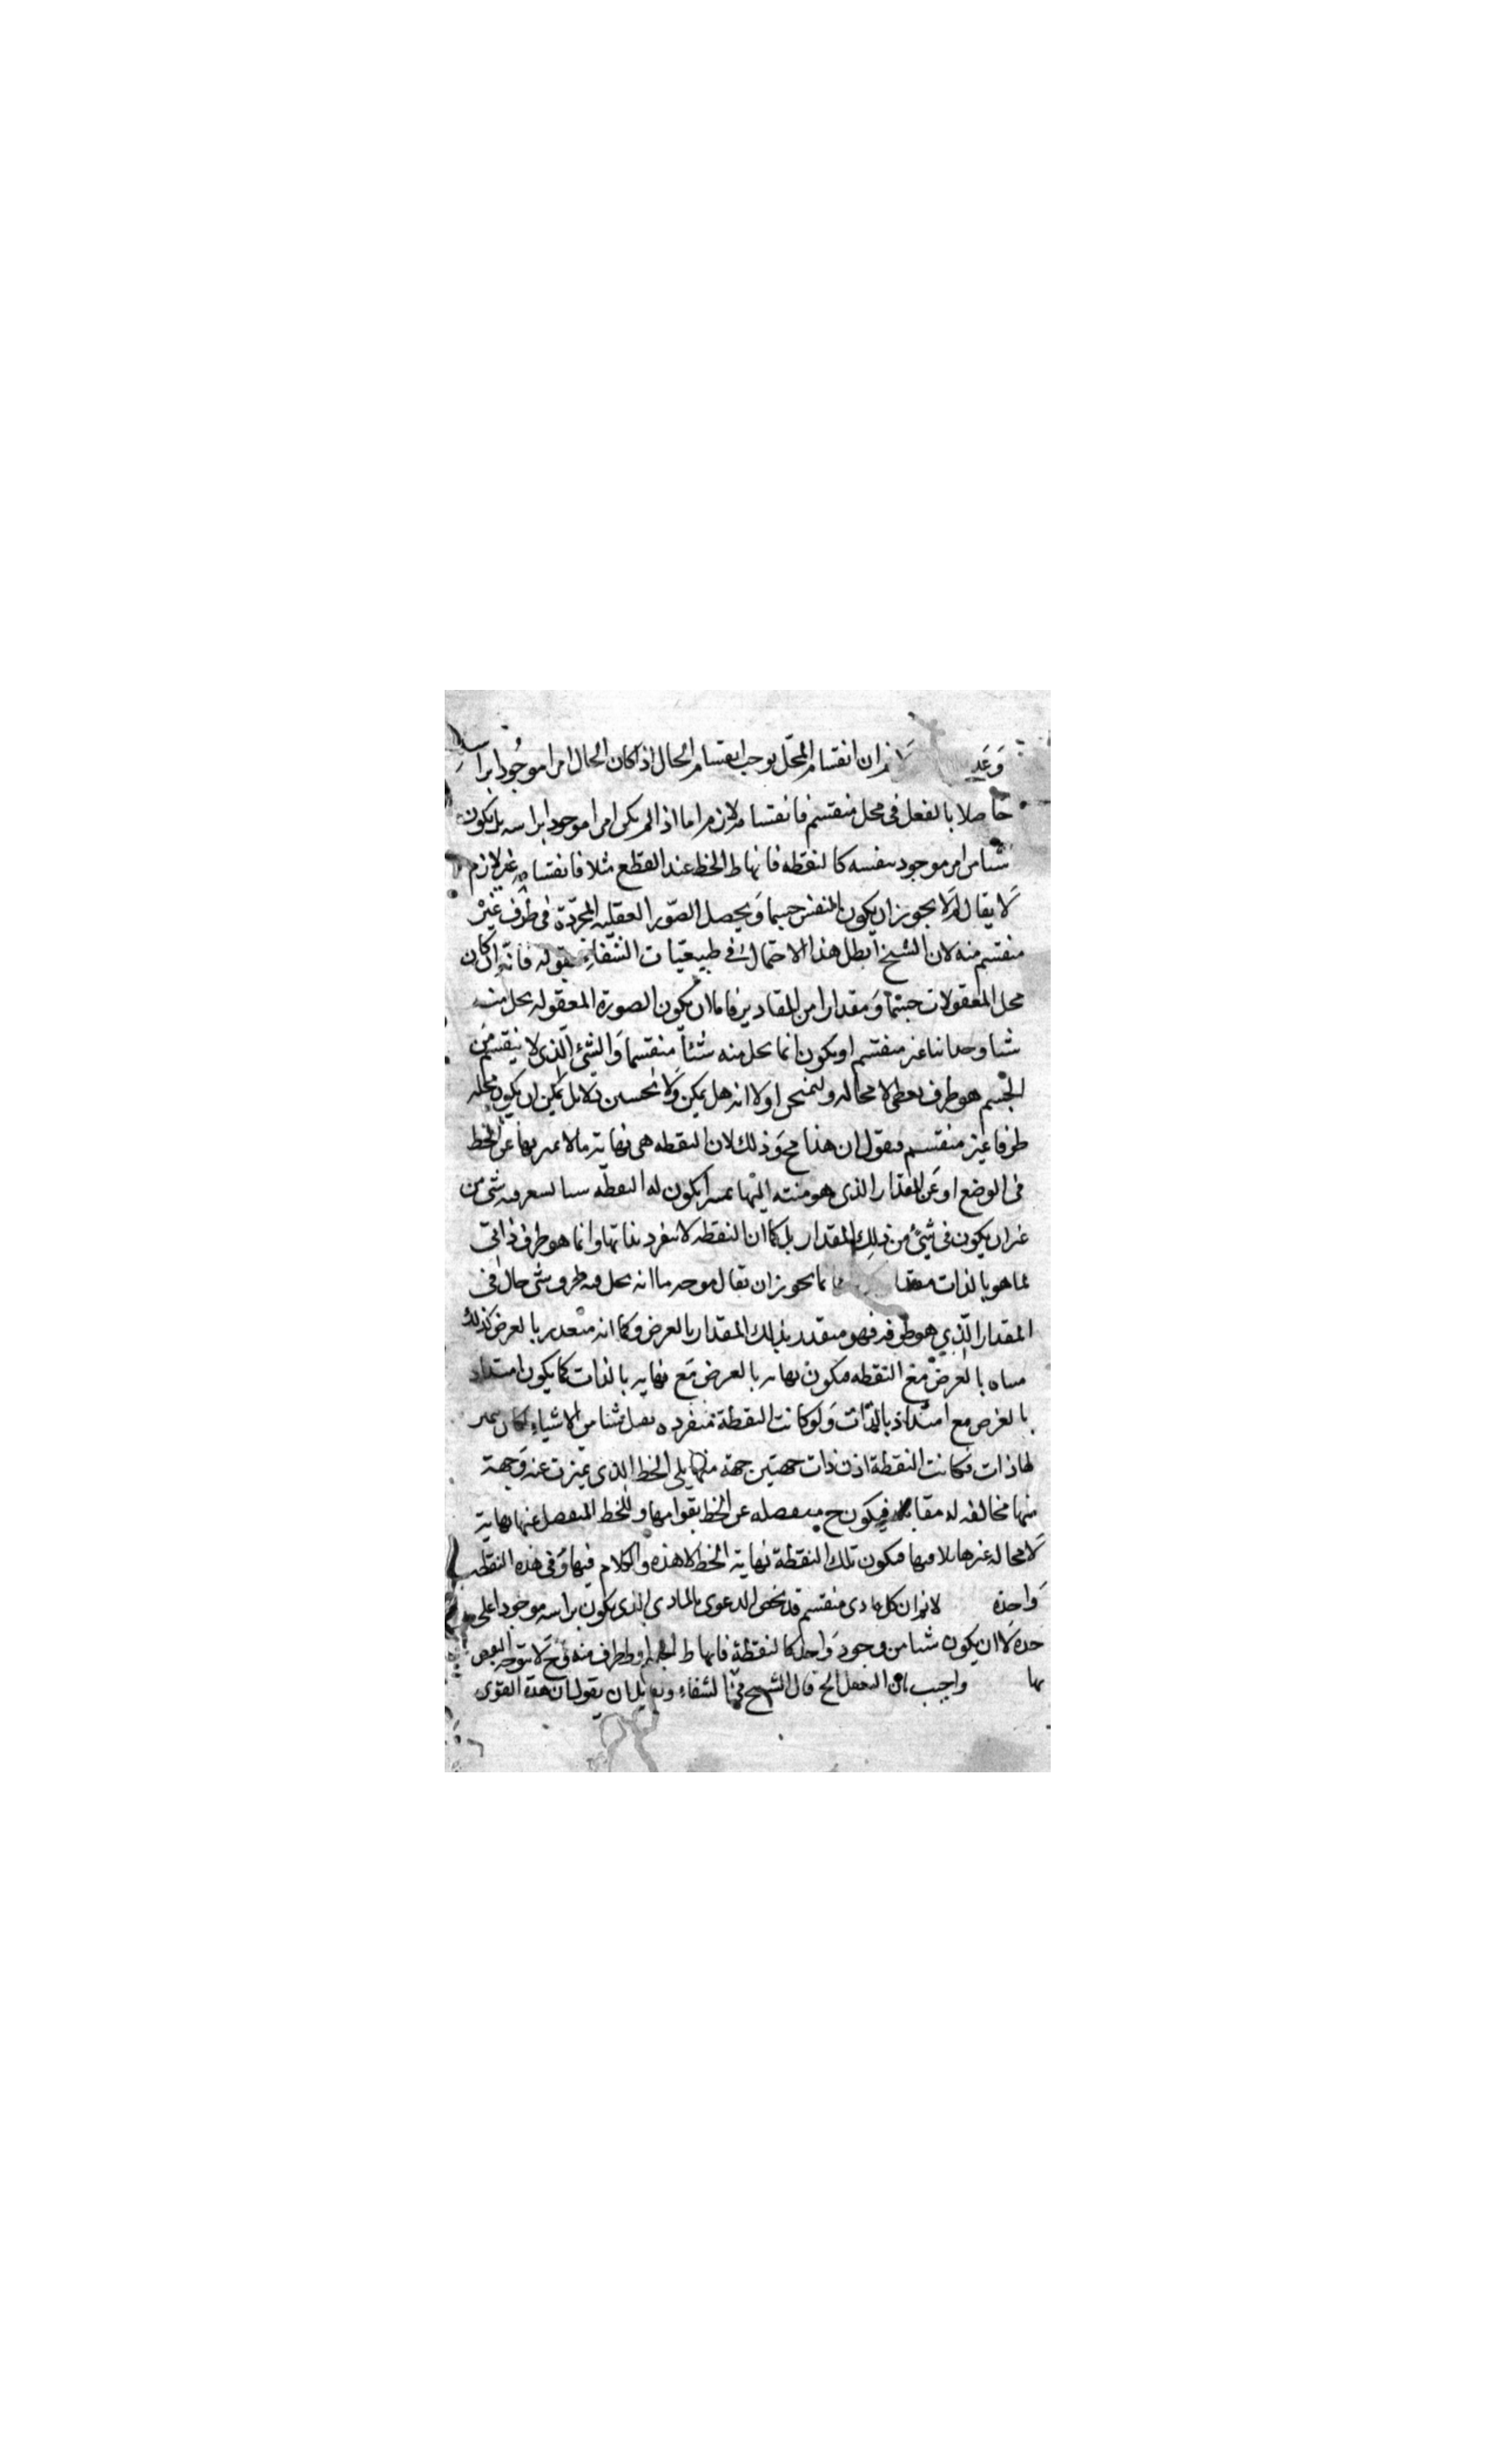 وعد لانم ان انقسام المحل يوجب انقسام الحال اذا كان الحال امرا موجودا براسه
حاصلا بالفعل فى محل منقسم فانقسامه لازم اما اذا لم يكن امرا موجودا براسه بل يكون
شيا من امر موجود بنفسه كالنقطه فانها ط الخط عند القطع مثلا فانقسامه غير لازم
لا يقال لم لا يجوز ان يكون النفس جسما ويحصل الصور العقليه المجردة فى طرف غير
منقسم منه لان الشيخ ابطل هذا الاحتمال فى طبيعيات الشفاء بقوله فانه ان كان
محل المعقولات جسما ومقدارا من المقادير فاما ان يكون الصورة المعقوله يحل منه
شيا وحدانيا غير منقسم او يكون انما يحل منه شيئا منقسما والشئ الذى لا ينقسم من
الجسم هو طرف نقطى لا محاله ولنمتحن اولا انه هل يمكن ان يكون محله
طرفا غير منقسم فنقول ان هذا مح وذلك لان النقطه هى نهاية ما لا تميز لها عن الخط
فى الوضع او عن المقدار الذى هو منته اليها يكون له النقطه شى من
غير ان يكون فى شئ من ذلك المقدار بل كما ان النقطه لا تنفرد بذاتها وانما هو طرف ذاتى
لما هو بالذات مقدار يجوز ان يقال بوجه ما انه يحل فيه طرف شى حال فى
المقدار الذي هو طرفه فهو متقدر بذلك المقدار بالعرض وكما انه متقدر بالعرض كذلك
بالعرض مع النقطه فيكون نهايه بالعرض مع نهايه بالذات كما يكون امتداد
بالعرض مع امتداد بالذات ولو كانت النقطة منفرده تقبل شيا من الاشياء لكان تميز
لها ذات فكانت النقطة اذن ذات جهتين جهة منها يلى الخط الذى تميزت عنه وجهة
منها مخالفه له مقابله فيكون ح منفصله عن الخط بقوامها وللخط المنفصل عنها نهاية
لا محاله غيرها يلاقيها فيكون تلك النقطة نهاية الخط لا هذه والكلام فيها وفى هذه النقطه
واحدة لانم ان كل مادى منقسم قد يخص الدعوى بالمادى الذى يكون براسه موجودا على
حدة لا ان يكون شيا من وجود واحد كالنقطة فانها ط الخط او طرف منه وح لا يتوجه النقض
بها واجيب بان التعقل الخ قال الشيخ فى الشفاء ولقايل ان يقول ان هذه القوى